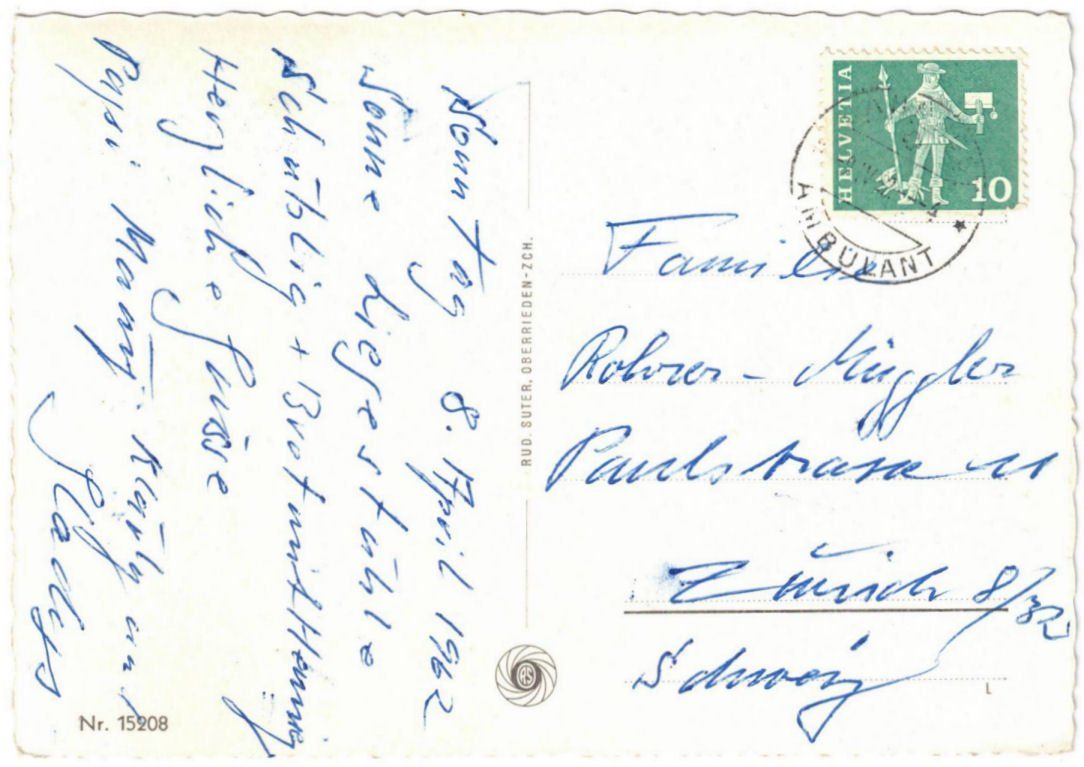 Sonntag 8. April 1962
Sonne Liegestühle
Schüblig + Brot mit Hennig
Herzliche Grüsse
Papi Mami, Klärly und
Gladys
RUD. SUTER, OBERRIEDEN-ZCH.
Nr. 15208
HELVETIA
10
AMBULANT
Familie
Rohrer – Müggler
Paulstrasse 11
Zürich 8/32
Schweiz
L